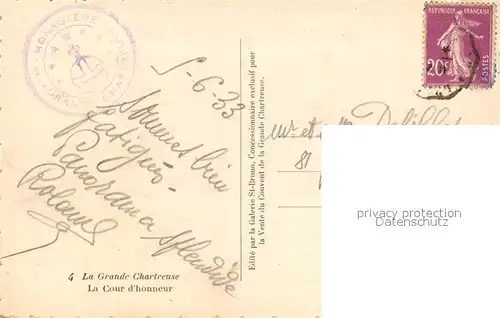 MONASTERE
GRANDE
5-6-33
Sommes bien
fatigués -
Panorama splendide
Roland
4 La Grande Chartreuse
La Cour d'honneur
Edité par la Galerie St-Bruno, Concessionnaire exclusif pour
la Vente du Couvent de la Grande Chartreuse.
REPUBLIQUE FRANÇAISE
20c
POSTES
Mr et Mme
81
privacy protection
Datenschutz